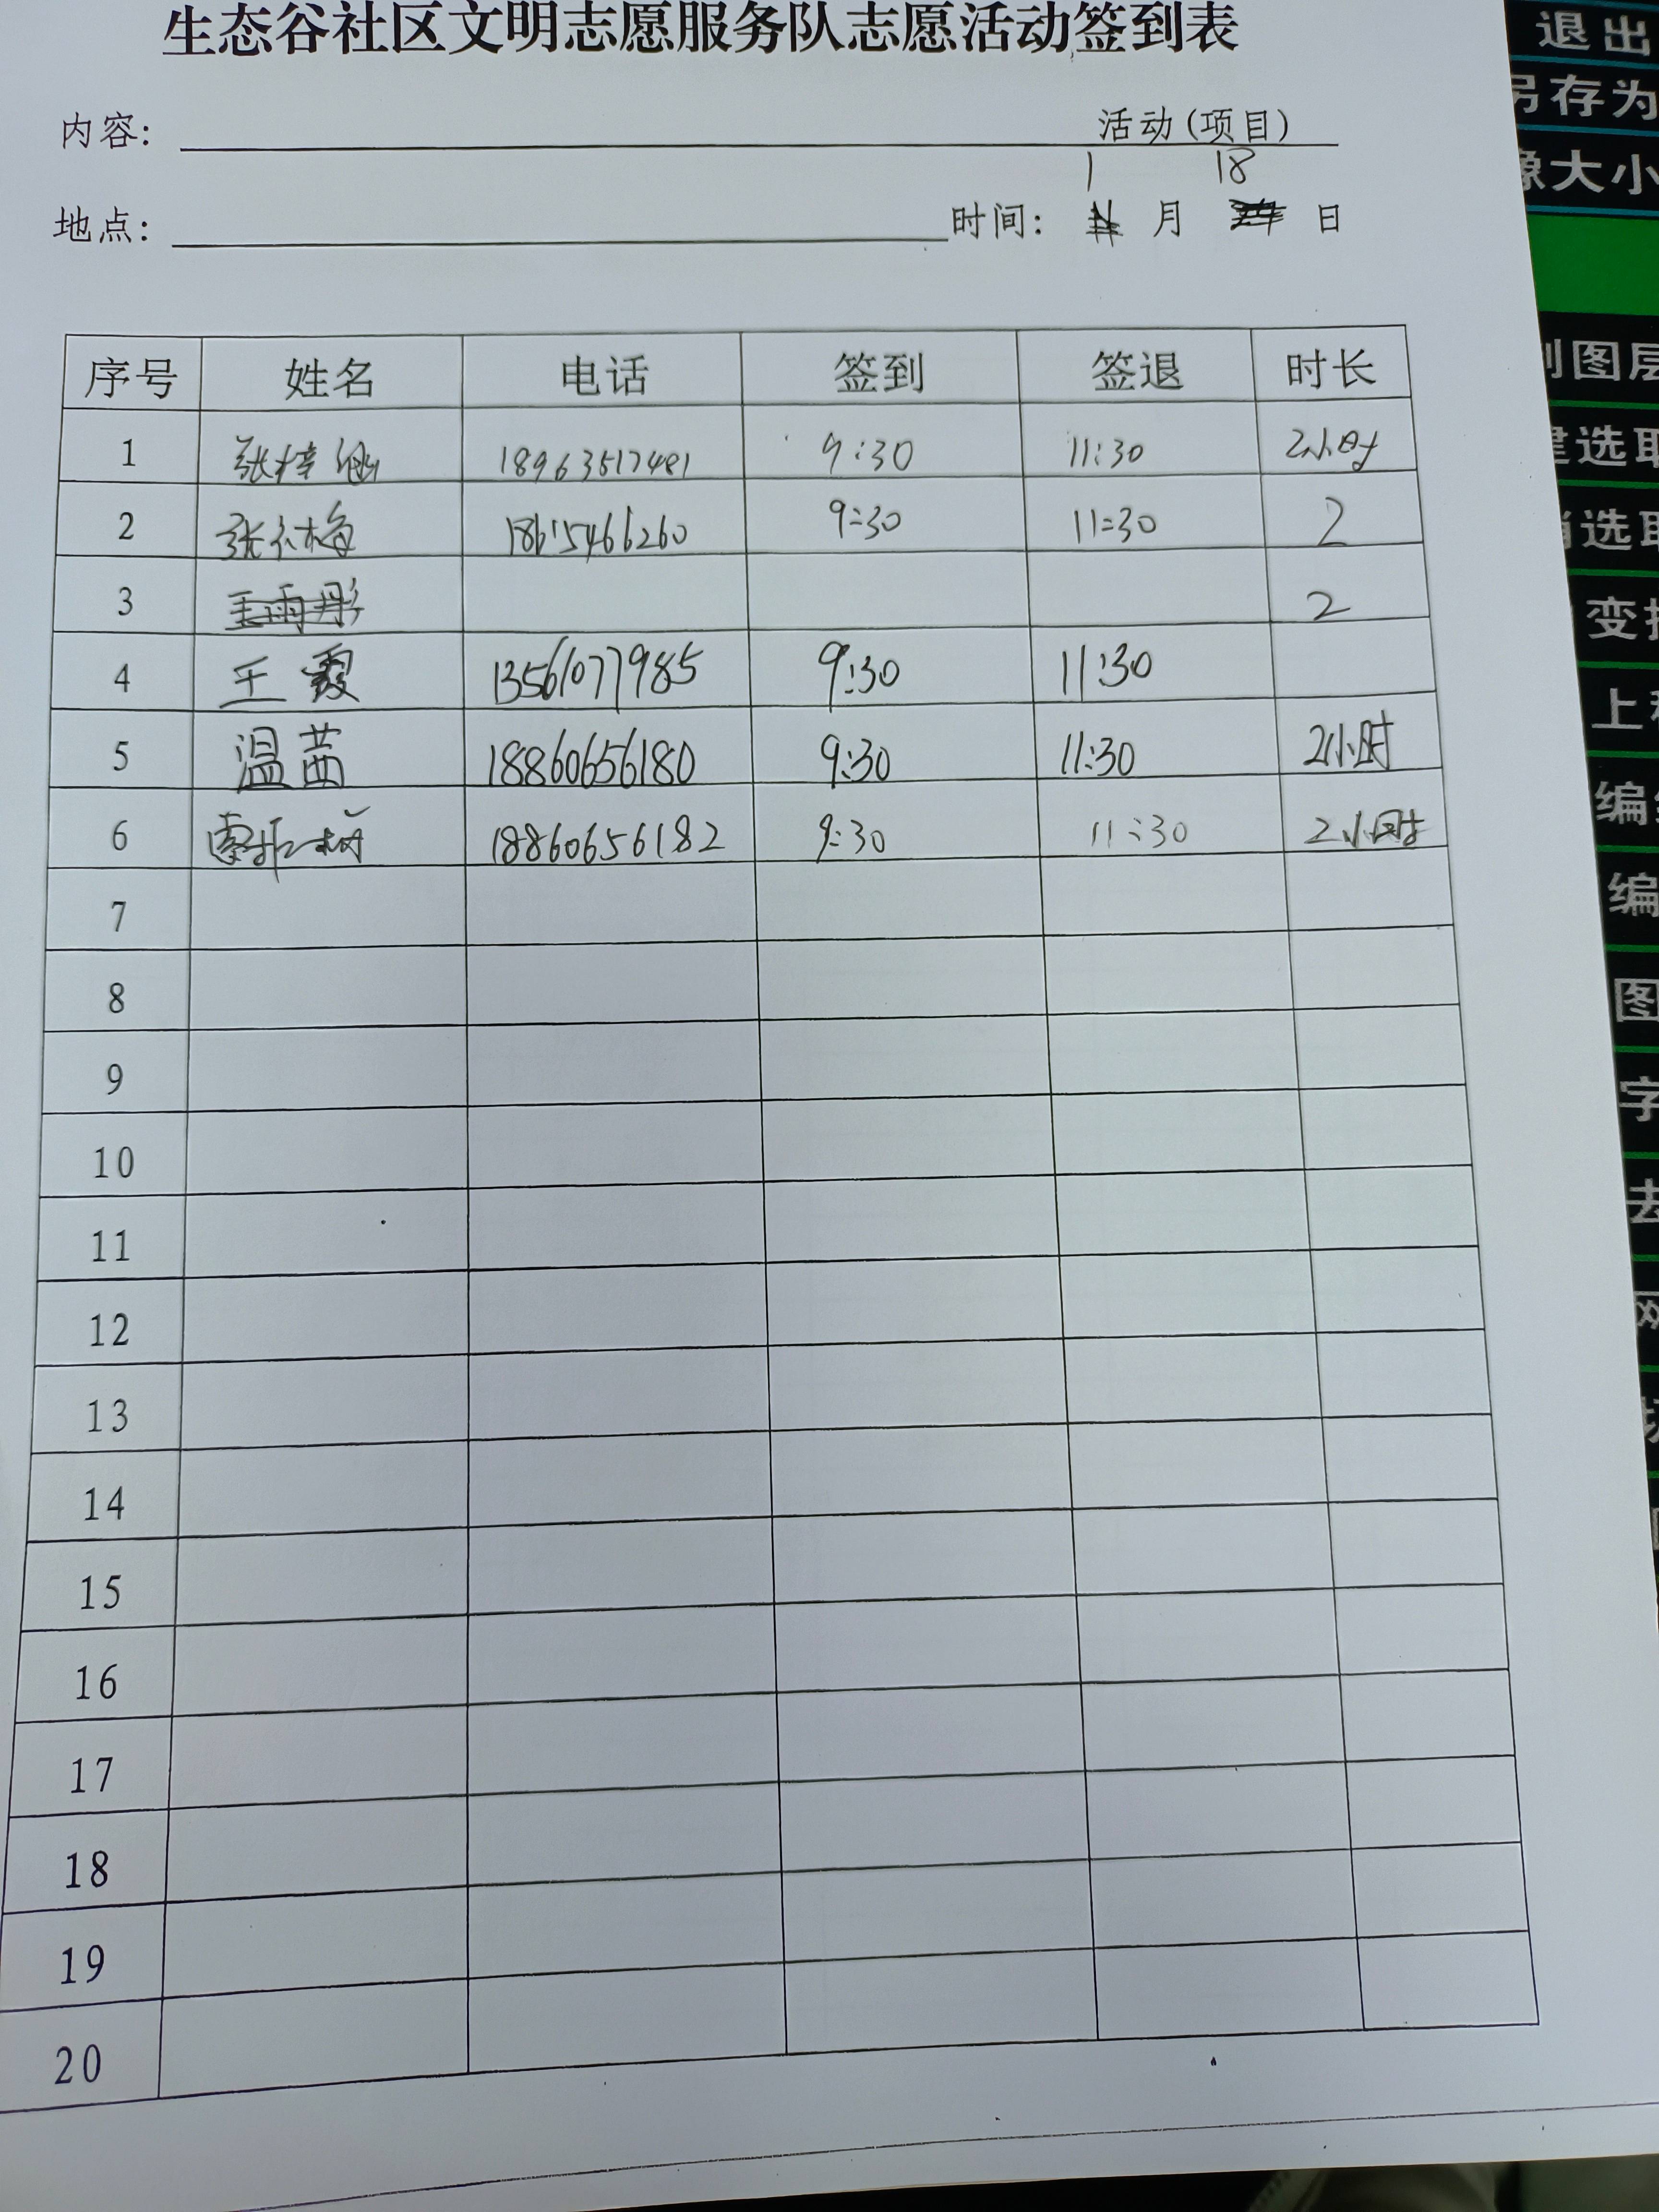 生态谷社区文明志愿服务队志愿活动签到表
内容: 活动(项目)
1 18
地点: 时间: 月 日
序号 姓名 电话 签到 签退 时长
1 张梓 18963517481 9:30 11:30 2小时
2 张 梅 18615466260 9:30 11:30 2
3 王雨彤 2
4 王霞 13561077985 9:30 11:30
5 温茜 18860656180 9:30 11:30 2小时
6 18860656182 9:30 11:30 2小时
7
8
9
10
11
12
13
14
15
16
17
18
19
20
退出
另存为
像大小
图层
建选取
选取
变换
上移
编
编
图
字
去
网